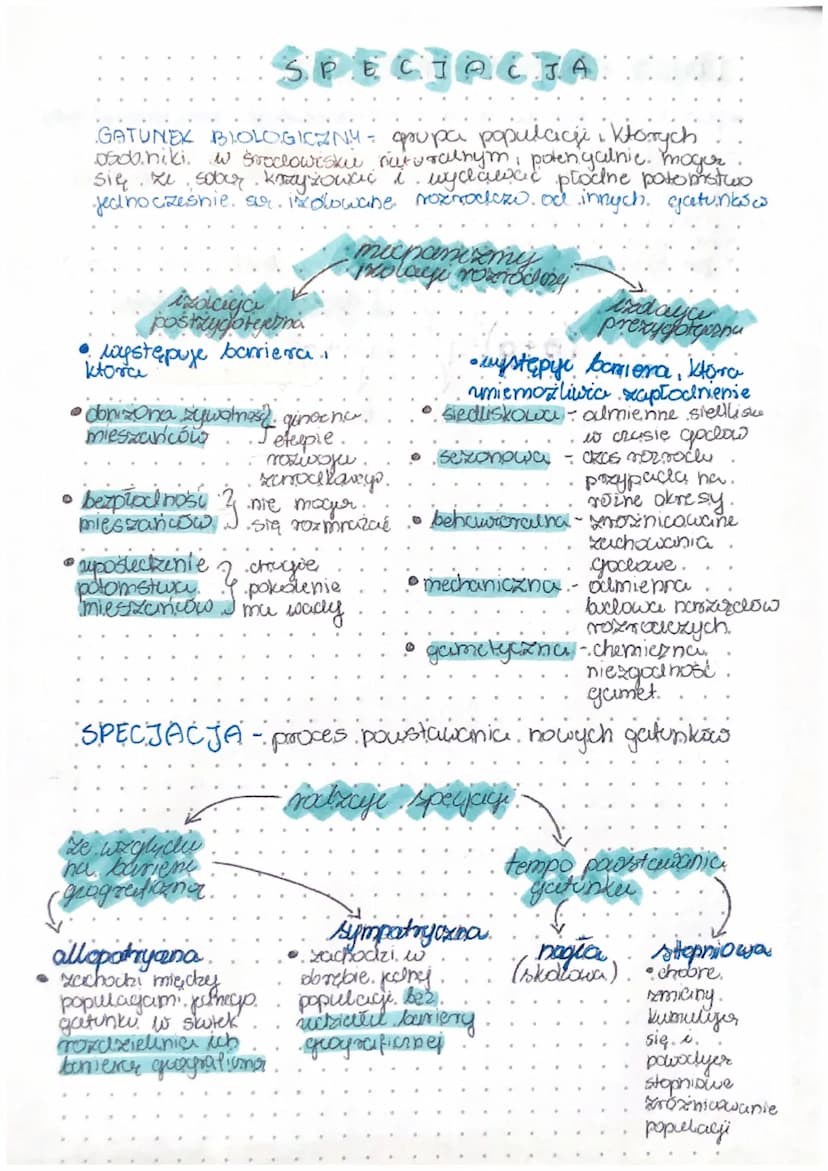 SPECJACJA
GATUNEK BIOLOGICZNY - grupa populacji, których
osobniki w środowisku naturalnym, potencjalnie mogą
się ze sobą krzyżować i wydawać płodne potomstwo
jednocześnie są izolowane rozrodczo od innych gatunków
mechanizmy
izolacji rozrodczej
izolacja
postzygotyczna
• występuje bariera,
która
• obniżona żywotność ginące na
mieszańców etapie
rozwoju
zarodkowego
• bezpłodność nie mogą
mieszańców się rozmnażać
• upośledzenie drugie
potomstwa pokolenie
mieszańców ma wady
izolacja
prezygotyczna
• występuje bariera, która
uniemożliwia zapłodnienie
• siedliskowa - odmienne siedliska
w czasie godów
• sezonowa - czas rozrodu
przypada na
różne okresy
• behawioralna - zróżnicowane
zachowania
godowe
• mechaniczna - odmienna
budowa narządów
rozrodczych
• gametyczna - chemiczna
niezgodność
gamet
SPECJACJA - proces powstawania nowych gatunków
rodzaje specjacji
ze względu
na barierę
geograficzną
allopatryczna
• zachodzi między
populacjami jednego
gatunku w skutek
rozdzielenia ich
barierą geograficzną
sympatryczna
• zachodzi w
obrębie jednej
populacji bez
udziału bariery
geograficznej
tempo powstawania
gatunku
nagła
(skokowa)
stopniowa
• drobne
zmiany
kumulują
się i
powodują
stopniowe
zróżnicowanie
populacji